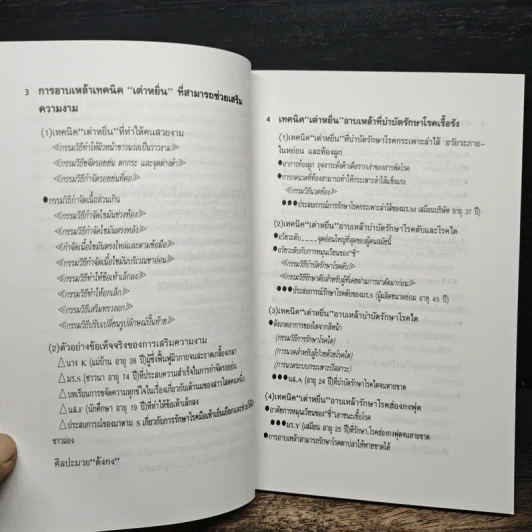 3 การอาบเหล้าเทคนิค "เต่าหยิ่น" ที่สามารถช่วยเสริม
ความงาม
(1)เทคนิค"เต่าหยิ่น"ที่ทำให้คนสวยงาม
≪กรรมวิธีทำให้ผิวหน้าขาวนวลเป็นวาวงาม≫
≪กรรมวิธีขจัดรอยย่น ตกกระ และจุดด่างดำ≫
≪กรรมวิธีกำจัดรอยย่นที่คอ≫
●กรรมวิธีกำจัดเนื้อส่วนเกิน
≪กรรมวิธีกำจัดไขมันช่วงท้อง≫
≪กรรมวิธีกำจัดไขมันตรงหลัง≫
≪กำจัดเนื้อไขมันตรงไหล่และตามข้อมือ≫
≪กรรมวิธีกำจัดเนื้อไขมันบริเวณขาอ่อน≫
≪กรรมวิธีทำให้ข้อเท้าเล็กลง≫
≪กรรมวิธีทำให้อกเล็ก≫
≪กรรมวิธีเสริมทรวงอก≫
≪กรรมวิธีปรับเปลี่ยนรูปลักษณ์ปั้นท้าย≫
(2)ตัวอย่างข้อเท็จจริงของการเสริมความงาม
△นาง K (แม่บ้าน อายุ 38 ปี)ผู้ซึ่งฟื้นฟูผิวกายจนสะอาดเกลี้ยงเกลา
△มร.S (ชาวนา อายุ 74 ปี)ที่ประสบความสำเร็จในการกำจัดรอยย่น
△บทเรียนการขจัดความทุกข์ใจในเรื่องเกี่ยวกับเต้านมของสาวโสดคนหนึ่ง
△นส.F (นักศึกษา อายุ 19 ปี)ที่ทำให้ข้อเท้าเล็กลง
△ประสบการณ์ของมาดาม S เกี่ยวกับการรักษาโรคมือเท้าเย็นเยือกและ
ขาวผ่อง
ศิลปะมวย"ตังกง"
4 เทคนิค"เต่าหยิ่น"อาบเหล้าที่บำบัดรักษาโรคเรื้อรัง
(1)เทคนิค"เต่าหยิ่น"ที่บำบัดรักษาโรคกระเพาะลำไส้ อวัยวะภาย-
ในหย่อน และท้องผูก
●อาการท้องผูก อุจจาระคั่งค้างคือรากเง่าของสารพัดโรค
●การกดนวดที่ท้องสามารถทำให้กระเพาะลำไส้แข็งแรง
≪กรรมวิธีนวดท้อง≫
●●●ประสบการณ์การรักษาโรคกระเพาะลำไส้ของมร.M (เสมียนบริษัท อายุ 37 ปี)
(2)เทคนิค"เต่าหยิ่น"อาบเหล้าบำบัดรักษาโรคตับและโรคไต
●อวัยวะตับ____จุดอ่อนใหญ่ที่สุดของผู้คนสมัยนี้
●อวัยวะตับกับการหมุนเวียนของ"ชี่"
≪กรรมวิธีบำบัดรักษาโรคตับ≫
≪กรรมวิธีรักษาตับสำหรับผู้ที่เคยผ่านการผ่าตัดมาก่อน≫
●●●ประสบการณ์รักษาโรคตับของมร.N (ผู้ผลิตขนาดย่อม อายุ 45 ปี)
(3)เทคนิค"เต่าหยิ่น"อาบเหล้าบำบัดรักษาโรคไต
●สังเกตอาการของไตจากสีหน้า
(กรรมวิธีการรักษาโรคไต)
(การนวดสำหรับผู้ป่วยด้วยโรคไต)
(การนวดระบบกระเพาะปัสสาวะ)
●●●นส.A (อายุ 24 ปี)บำบัดรักษาโรคไตจนหายขาด
(4)เทคนิค"เต่าหยิ่น"อาบเหล้าบำบัดรักษาโรคฮ่องกงฟุต
●อาศัยการหมุนเวียนของ"ชี่"เอาชนะเชื้อโรค
●●●มร.Y (เสมียน อายุ 25 ปี)ที่รักษาโรคฮ่องกงฟุตจนหายขาด
●การอาบเหล้าสามารถรักษาโรคตาปลาให้หายขาดได้